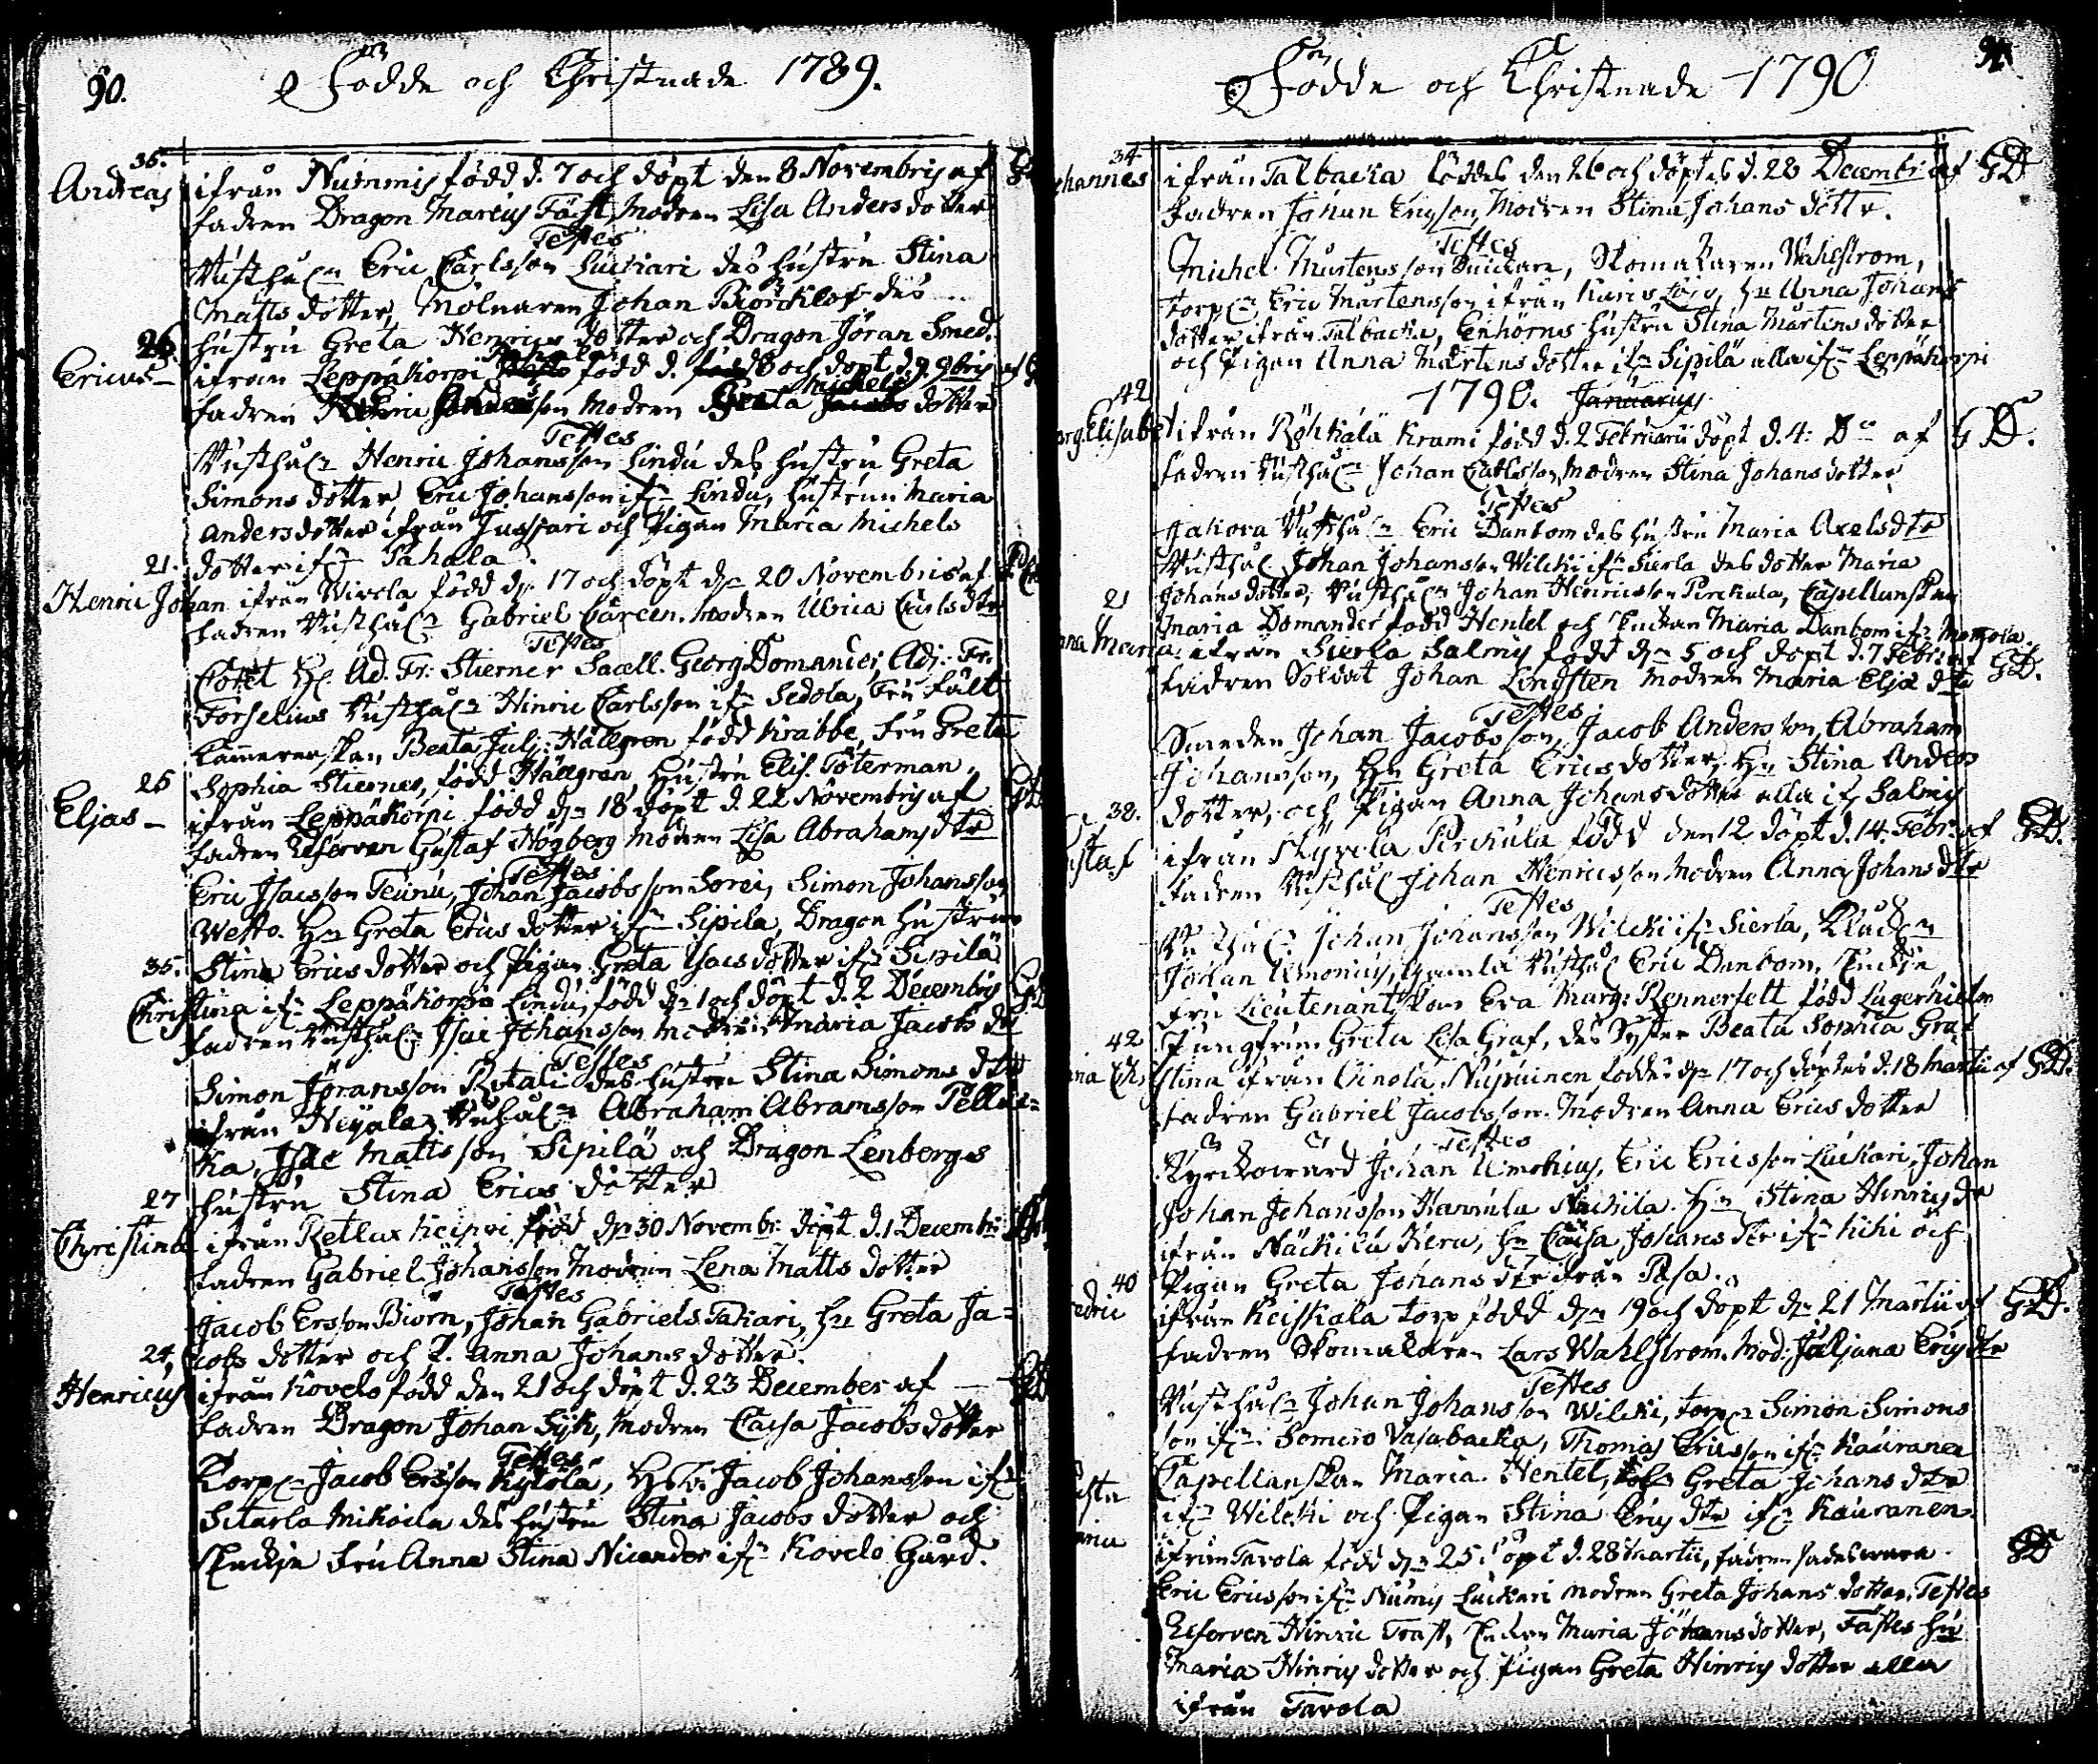 90.
Födde och Christnade 1789.
36.
Andreas ifrån Nummis född d. 7 och döpt den 8 Novembris af
fadren Dragon Marcus Fäst, Modren Lisa Anders dotter
Testes
Eric Carlsson Luckari des hustru Stina
Matts dotter, Molnaren Johan Biörcklöf des
hustru Greta Henrics dotter och Dragon Jöran Smed.
26.
Ericus ifrån Leppäkorpi född d. 8 och döpt d. 9bris af
fadren son Modren Greta Michels dotter
Testes
Henric Johansson Lindu des hustru Greta
Simons dotter, Eric Johansson Lindu, hustrun Maria
Andersdotter ifrån Jussari och Pigan Maria Michels
dotter ifn Tahala
21.
Henric Johan ifrån Wirela född dn 17 och döpt dn 20 Novembris af
fadren Gabriel Careen, modren Ulrica Carls dtr
Testes
Ad. Fr. Stierner Sacell. Georg Domander, Adj. Fr.
Forselius Hinric Carlsson ifn Sedola, Fru fält
Beata Julj: Hällgren född Krabbe, Fru Greta
Sophia Stierner, född Hällgren Hustru Elis. Töterman.
25
Eljas ifrån Leppäkorpi född dn 18 döpt d. 22 Novembris af
fadren Reserven Gustaf Högberg modren Lisa Abrahams dtr
Testes
Eric Isacsson Teinu, Johan Jacobsson Sorei, Simon Johansson
Westo. Hu Greta Erics dotter ifn Sipila, Dragon hustrun
Stina Erics dotter och Pigan Greta Isacs dotter ifn Sipilä
35.
Christina ifn Leppäkorpi Lindu, född dn 1 och döpt d. 2 Decembris
fadren Isac Johansson modren Maria Jacobs dtr
Testes
Simon Jöransson Ritali des hustru Stina Simons dtr
ifrån Heyala, Abraham Abramsson Pellu=
ka, Isac Mattsson Sipilä och Dragon Lenbergs
hustru Stina Erics dotter
27
Christina ifrån Retlax Keipvi född dn 30 Novembr: döpt d. 1 Decembr:
fadren Gabriel Johansson Modren Lena Matts dotter
Testes
Jacob Ersson Biörn, Johan Gabriels Takari, Hu Greta Ja=
cobs dotter och P. Anna Johans dotter.
24.
Henricus ifrån Kovelo född den 21 och döpt d. 23 December af
fadren Dragon Johan Syk, Modren Caisa Jacobs dotter
Testes
Torpn Jacob Ersson Kylölä, Jacob Johansson ifn
Sitarla Mikoila des hustru Stina Jacobs dotter och
Enckje fru Anna Stina Nicander ifn Kovelo Gård.
Födde och Christnade 1790
91.
34
hannes ifrån Talbacka föddes den 26 och döptes d. 28 Decembr af GD
fadren Johan Ericsson, Modren Stina Johans dotter.
Testes
Michel Martensson Snickare, Skomakaren Wahlström,
torpn Eric Martensson ifrån Karis Lojo, Hu Anna Johans
dotter ifrån Talbacka, Enhörns hustru Stina Martins dotter
och Pigan Anna Martens dotter ifn Sipilä alla ifn Leppäkorpi
1790. Januarius
42
rg. Elisabet ifrån Röhkälä Krami född d. 2 Februarii döpt d. 4: Do af GD.
fadren Johan Carlsson, Modren Stina Johans dotter
Testes
Hakora Eric Danbom des hustru Maria Axels dtr
Johan Johansson Wilcki ifn Sierla des dotter Maria
21
Johans dotter, Johan Henricsson Perckula, Capellanskan
Maria Domander född Hentel och Enckan Maria Danbom ifn Mongola.
nna Maria ifrån Sierla Salmis född dn 5 och döpt d. 7 Febr: af GD.
fadren Soldat Johan Lindsten modren Maria Eljæ dtr
Testes
Smeden Johan Jacobsson, Jacob Andersson, Abraham
Johansson, Hu Greta Erics dotter, Hu Stina Anders
dotter, och Pigan Anna Johans dotter alla ifn Salmis
38.
ustaf ifrån Kyrola Perckula född den 12 döpt d. 14 Febr: af GD.
fadren Johan Henricsson Modren Anna Johans dtr
Testes
Johan Johansson Wilcki ifn Sierla,
Johan Umonius, gamla Eric Danbom, Enckje
Fru Lieutenantskan Eva Marg: Rennerfelt född Lagerhielm
42
Jungfrun Greta Lisa Graf, des Syster Beata Sophia Graf
stina ifrån Oinola Nupuinen föddes dn 17 och döptes d. 18 Martii af GD.
fadren Gabriel Jacobsson. Modren Anna Erics dotter
Testes
Johan Umonius, Eric Ericsson Luckari, Johan
Johan Johansson Hannula Nackila. Hu Stina Hinrics dtr
ifrån Näckilä Heru, Hu Caisa Johans dtr ifn Kihi och
40
Pigan Greta Johans dtr ifrån Pasa.
edric ifrån Keiskala torp född dn 19 och döpt dn 21 Martii af GD.
fadren Skomakaren Lars Wahlstrom. Mod: Juljana Erics dtr
Testes
Johan Johansson Wilcki, torpn Simon Simons
son ifn Somero Vasabacka, Thomas Ericsson ifn Kauranen
Capellanskan Maria Hentel, Greta Johans dtr
usta
ifn Wilcki och Pigan Stina Erics dtr ifn Kauranen.
aria
ifrån Tavola född dn 25 döpt d. 28 Martii, fadren GD
Eric Ericsson ifn Numis Luckari modren Greta Johans dotter, Testes
Reserven Hinric Trast, Maria Johans dotter, Fastes hu
Maria Hinrics dotter och Pigan Greta Hinrics dotter alla
ifrån Tavola